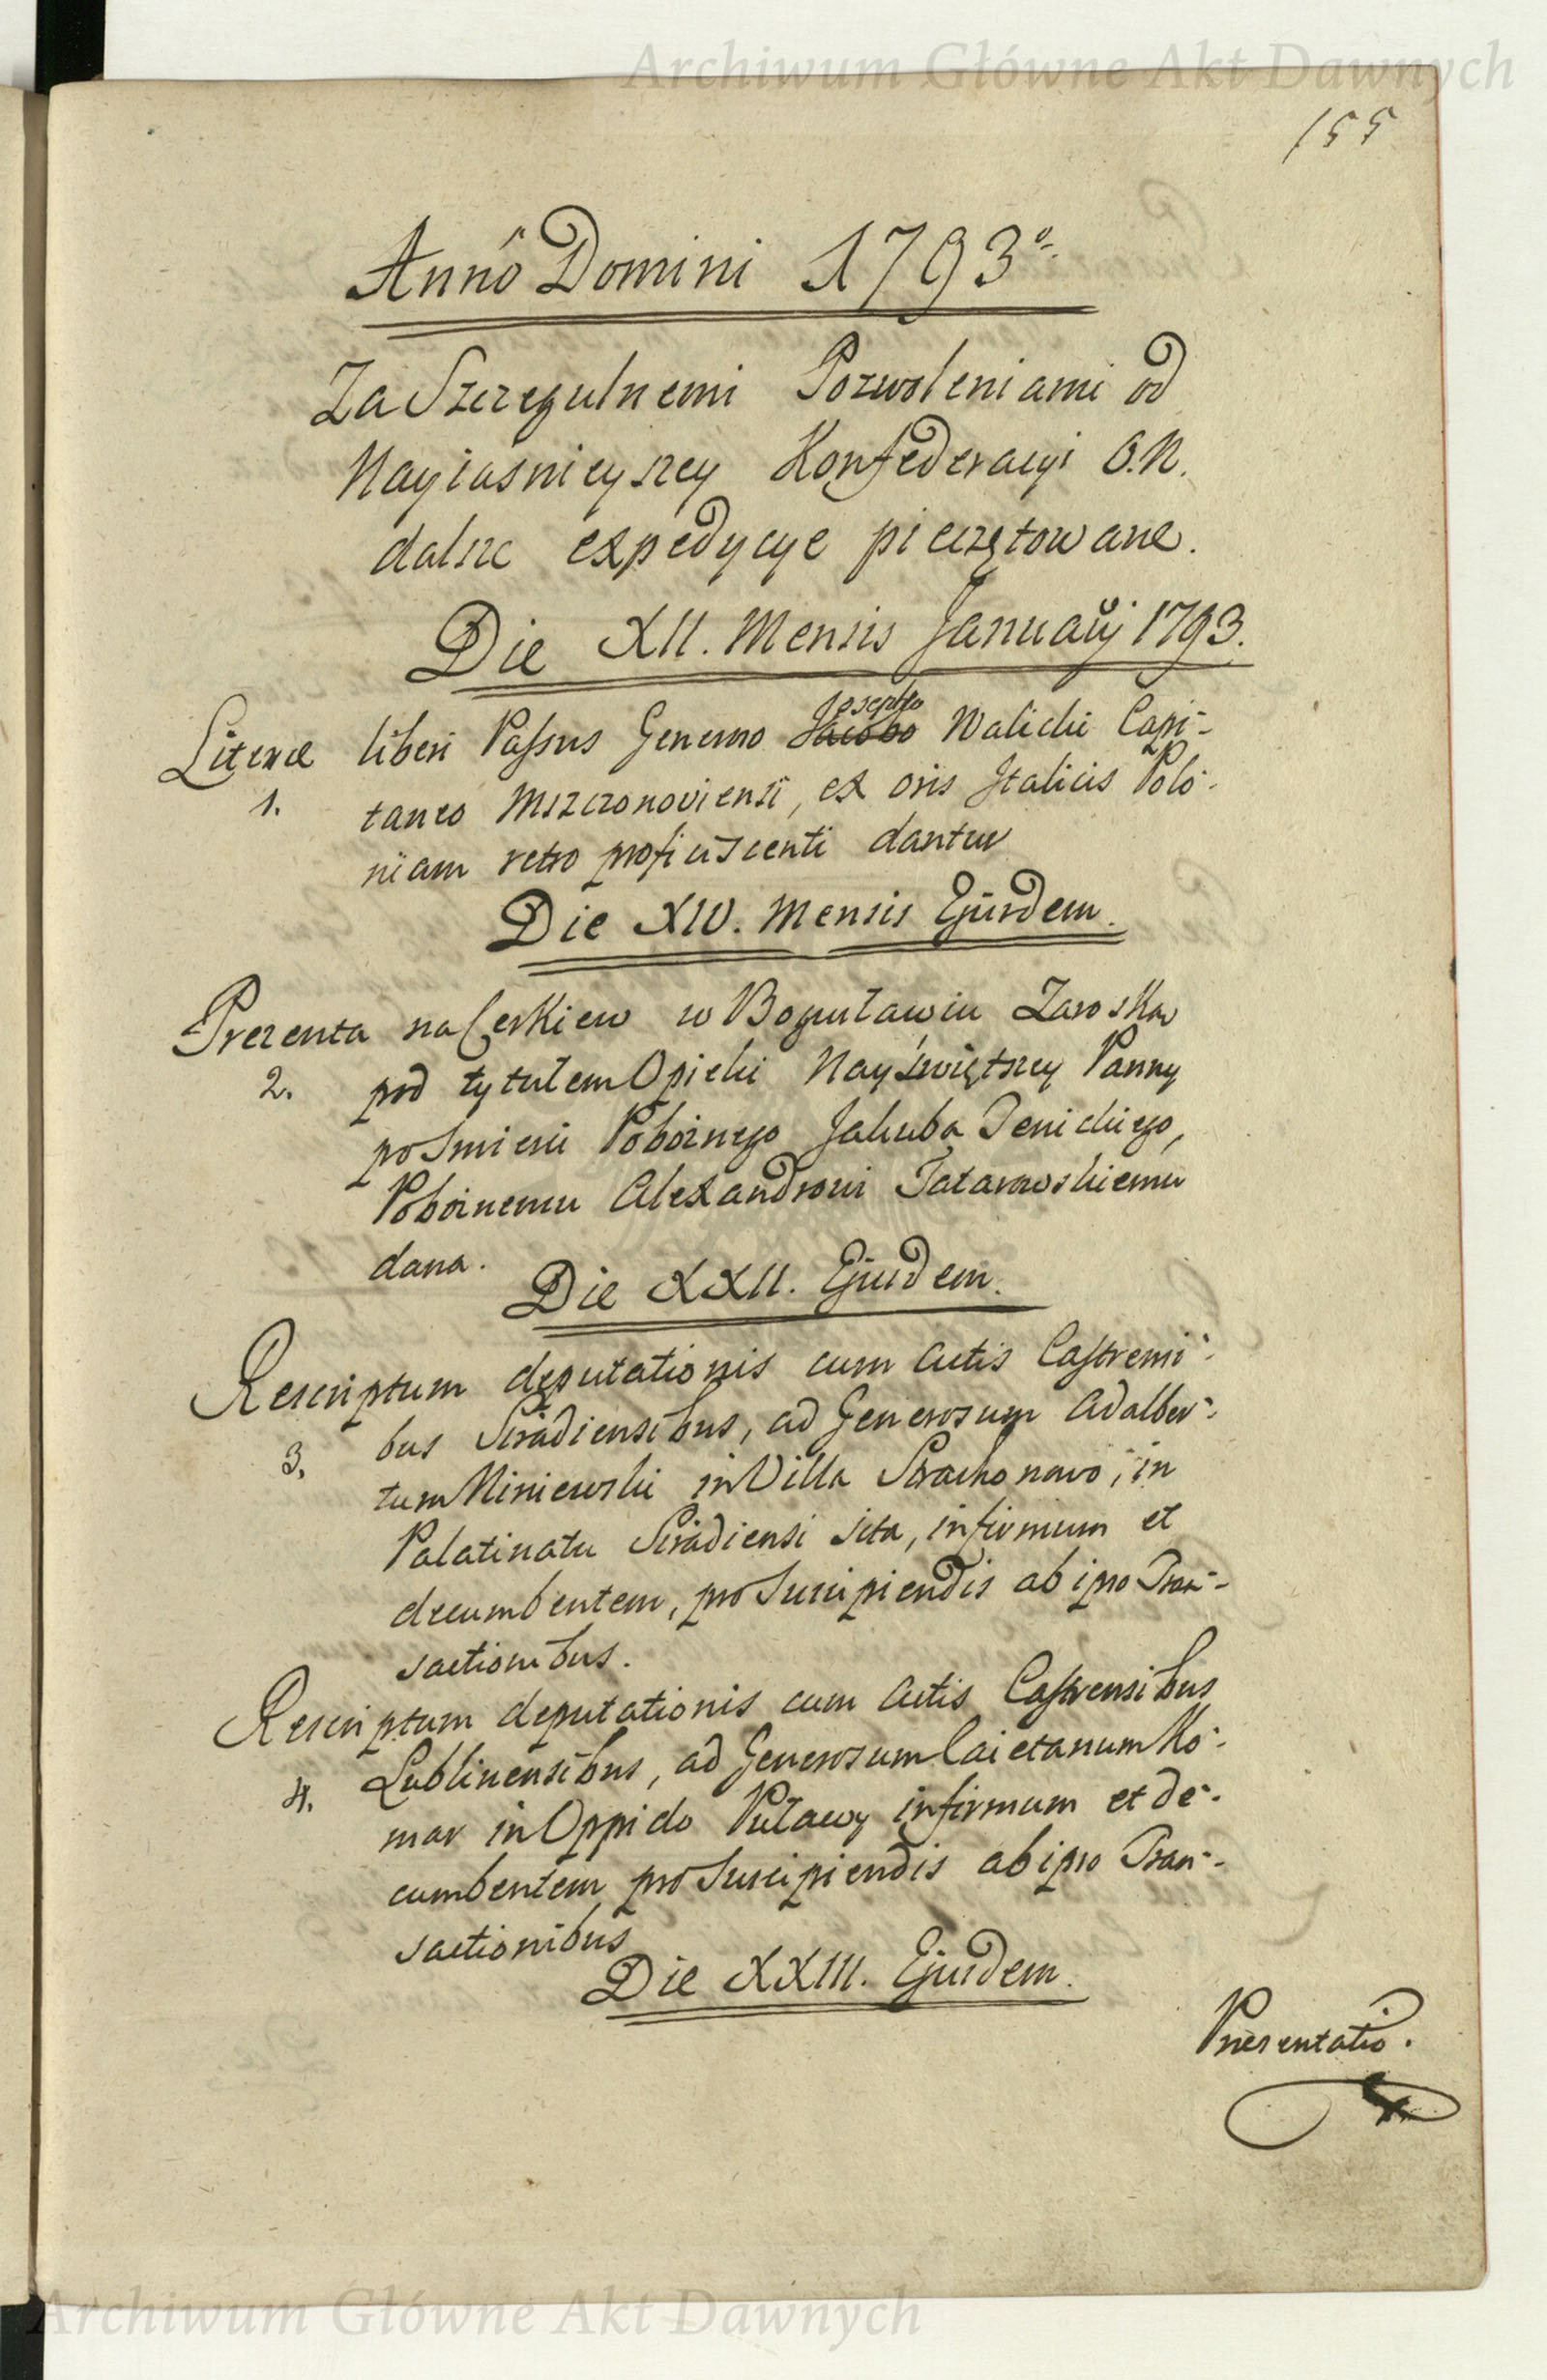 Archiwum Główne Akt Dawnych
155
Annô Domini 1793º
Za Szczegulnemi Pozwoleniami od
Nayiasnieyszey Konfederacyi O.N.
dalsze expedycye pieczętowane.
Die XII. Mensis Januarij 1793.
Josepho
Literæ liberi Passus Generoso Jacobo Walicki Capi-
1. taneo Mszczonoviensi, ex oris Italicis Polo-
niam retro proficiscenti dantur
Die XIV. Mensis Ejusdem.
Prezenta na Cerkiew w Bogusławiu
2. pod tytułem Opieki Nayświętszey Panny
po Smierci Pobożnego Jakuba
Pobożnemu Alexandrowi
dana.
Die XXII. Ejusdem.
Rescriptum deputationis cum Actis Castrensi-
3. bus Siradiensibus, ad Generosum Adalber-
tum Miniewski in Villa Strachonowo, in
Palatinatu Siradiensi sita, infirmum et
decumbentem, pro Suscipiendis ab ipso Tran-
sactionibus.
Rescriptum deputationis cum Actis Castrensibus
4. Lublinensibus, ad Generosum Caietanum Ko-
mar in Oppido Puławy infirmum et de-
cumbentem pro Suscipiendis ab ipso Tran-
sactionibus
Die XXIII. Ejusdem.
Præsentatio.
Archiwum Główne Akt Dawnych